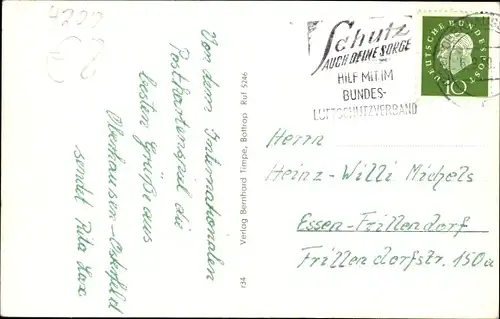 4200
Schutz
AUCH DEINE SORGE
HILF MIT IM
BUNDES-
LUFTSCHUTZVERBAND
DEUTSCHE BUNDESPOST
10
Von dem Internationalen
Postkartenspiel die
besten Grüße aus
Oberhausen-Osterfeld
sendet Rita Lax
Verlag Bernhard Timpe, Bottrop Ruf 5246
r34
Herrn
Heinz-Willi Michels
Essen-Frillendorf
Frillendorfstr. 150a